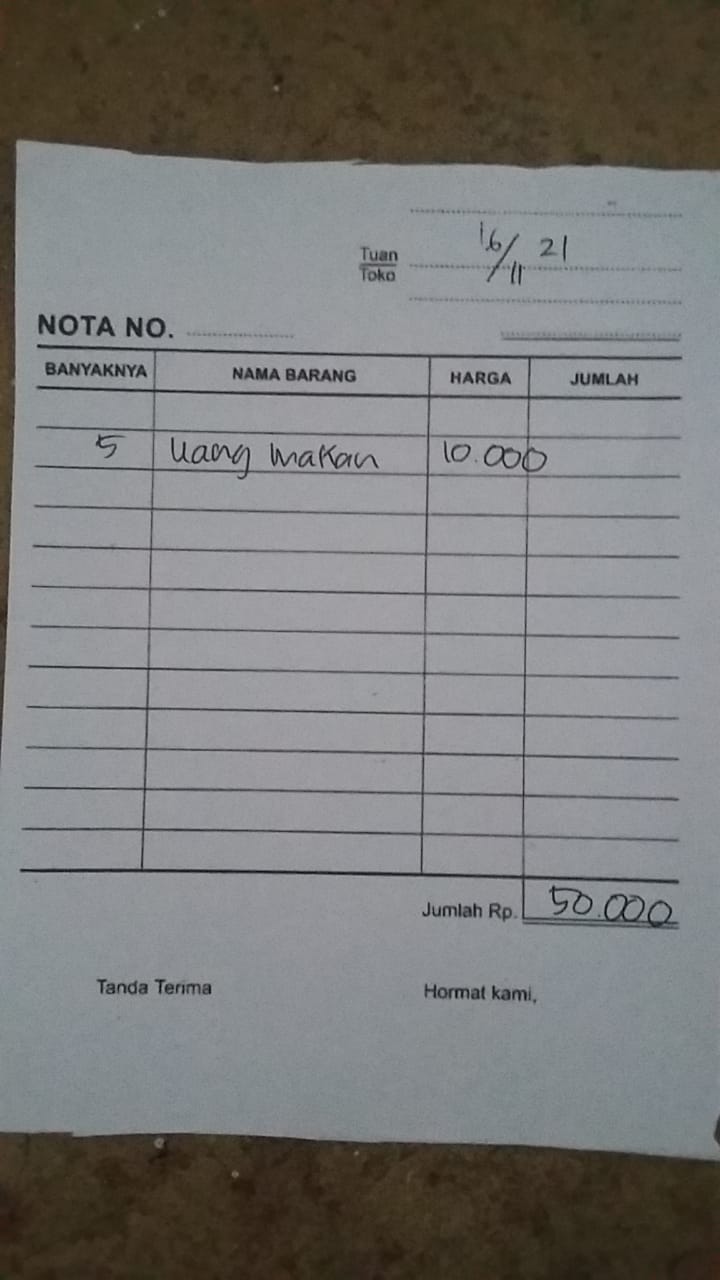 16/11 21
Tuan
Toko
NOTA NO.
BANYAKNYA NAMA BARANG HARGA JUMLAH
5 Uang makan 10.000
Jumlah Rp. 50.000
Tanda Terima Hormat kami,